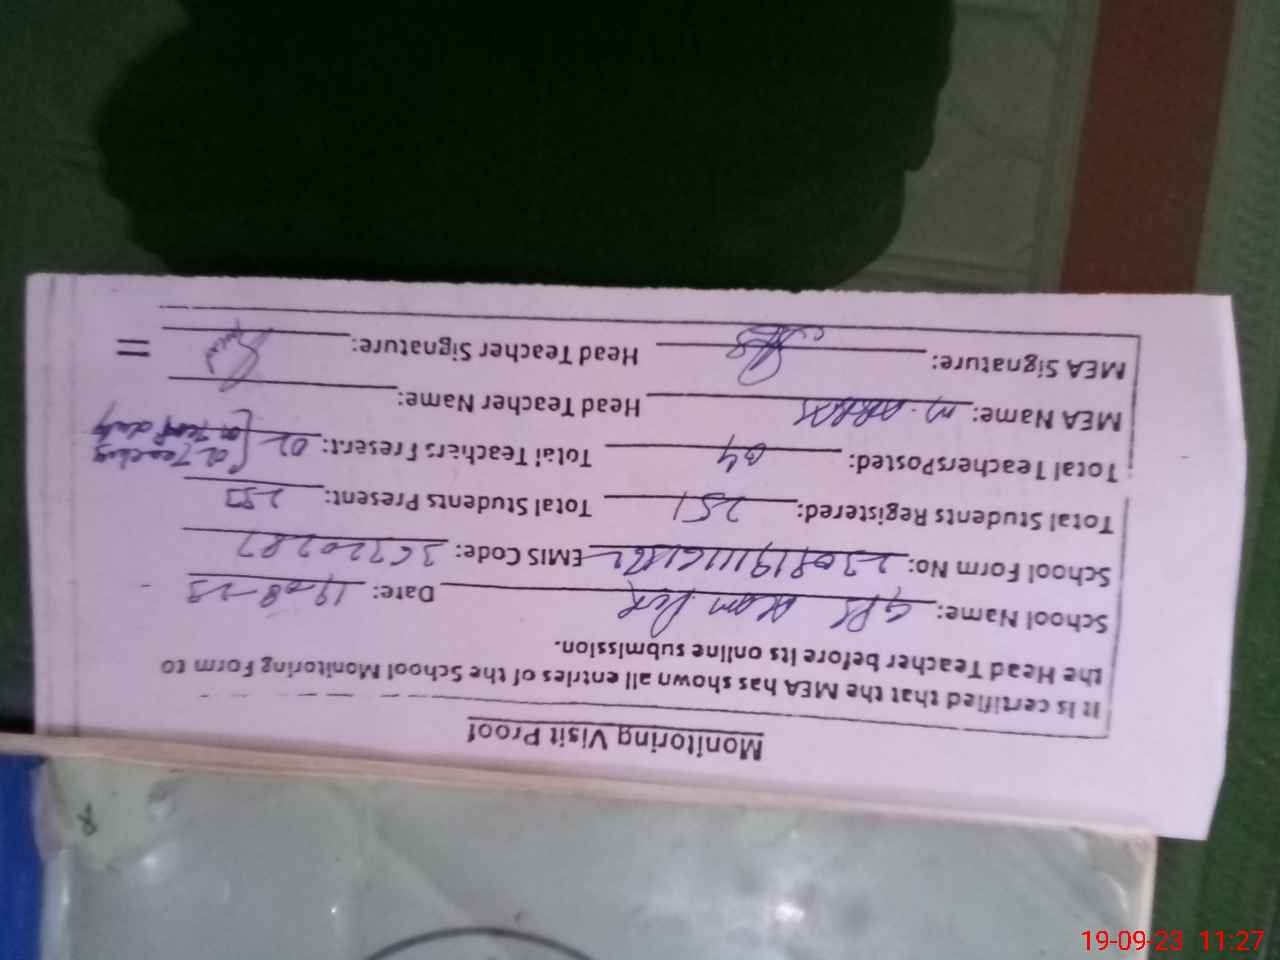 Monitoring Visit Proof
It is certified that the MEA has shown all entries of the School Monitoring Form to
the Head Teacher before its online submission.
School Name: GPS Date: 19-08-23
School Form No: EMIS Code:
Total Students Registered: 251 Total Students Present:
Total TeachersPosted: 04 Total Teachers Present: 02 (02 Teaching
on duty
MEA Name: M. ABBAS Head Teacher Name:
MEA Signature: Head Teacher Signature:
19-09-23 11:27